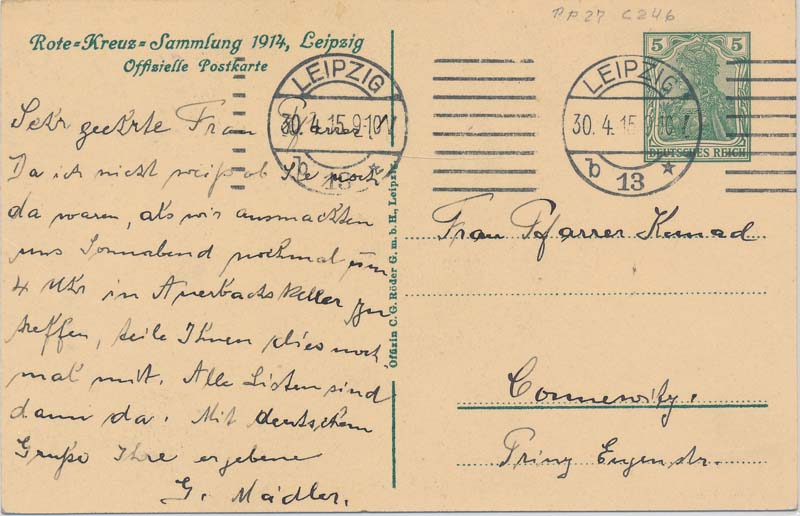 PP27 C246
Rote=Kreuz=Sammlung 1914, Leipzig
Offizielle Postkarte
LEIPZIG
30. 4. 15. 9-10 V
b 13 *
LEIPZIG
30. 4. 15. 9-10 V
b 13 *
5 5
DEUTSCHES REICH
Sehr geehrte Frau Pfarrer!
Da ich nicht weiß ob Sie noch
da waren, als wir ausmachten
uns Sonnabend nochmal um
4 Uhr in Auerbachs Keller zu
treffen, teile Ihnen dies noch
mal mit. Alle Listen sind
dann da. Mit deutschem
Gruße Ihre ergebene
G. Mädler.
Offizin C. G. Röder G. m. b. H., Leipzig.
Frau Pfarrer
Connewitz.
Prinz Eugenstr.